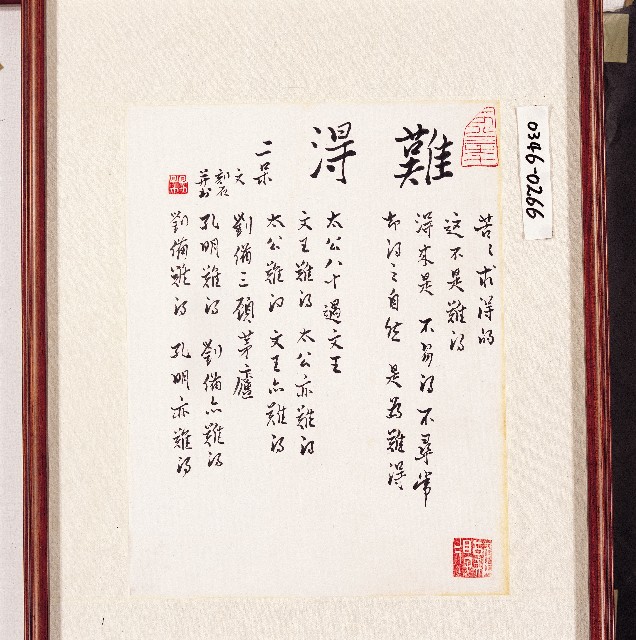 難得
苦々求得的
這不是難得
得來是 不易得 不尋常
却得之自然 是為難得
太公八十遇文王
文王難得 太公亦難得
太公難得 文王亦難得
劉備三顧茅廬
孔明難得 劉備亦難得
劉備難得 孔明亦難得
二呆
文
刻石
并書
0346-0266